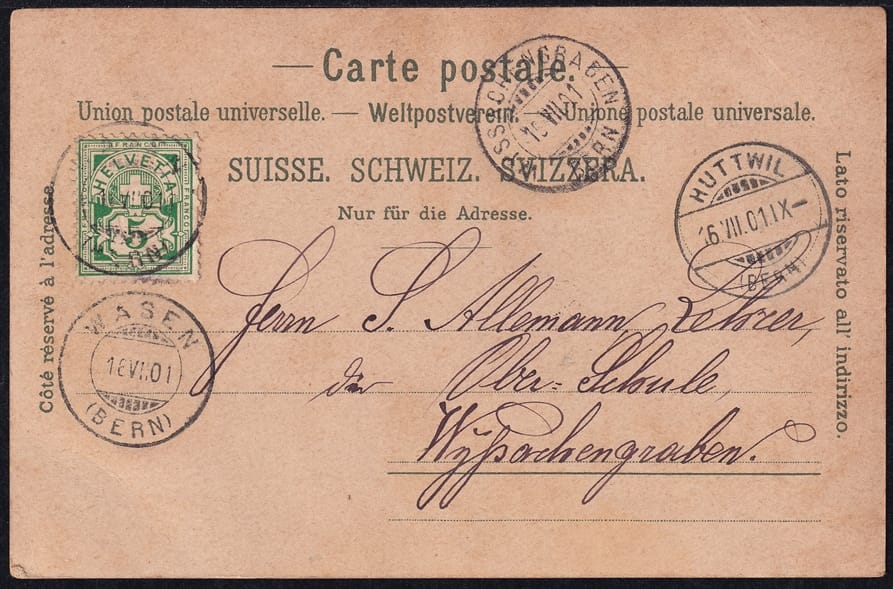 Carte postale.
Union postale universelle. — Weltpostverein. — Unione postale universale.
SUISSE. SCHWEIZ. SVIZZERA.
Nur für die Adresse.
Côté réservé à l'adresse.
Lato riservato all' indirizzo.
FRANCO
HELVETIA
FRANCO
5
WASEN
16 VII.01
(BERN)
BERN
16 VII 01
HUTTWIL
16.VII.01.IX–
(BERN)
Herrn S. Allemann, Lehrer,
der Ober-Schule,
Wyßachengraben.